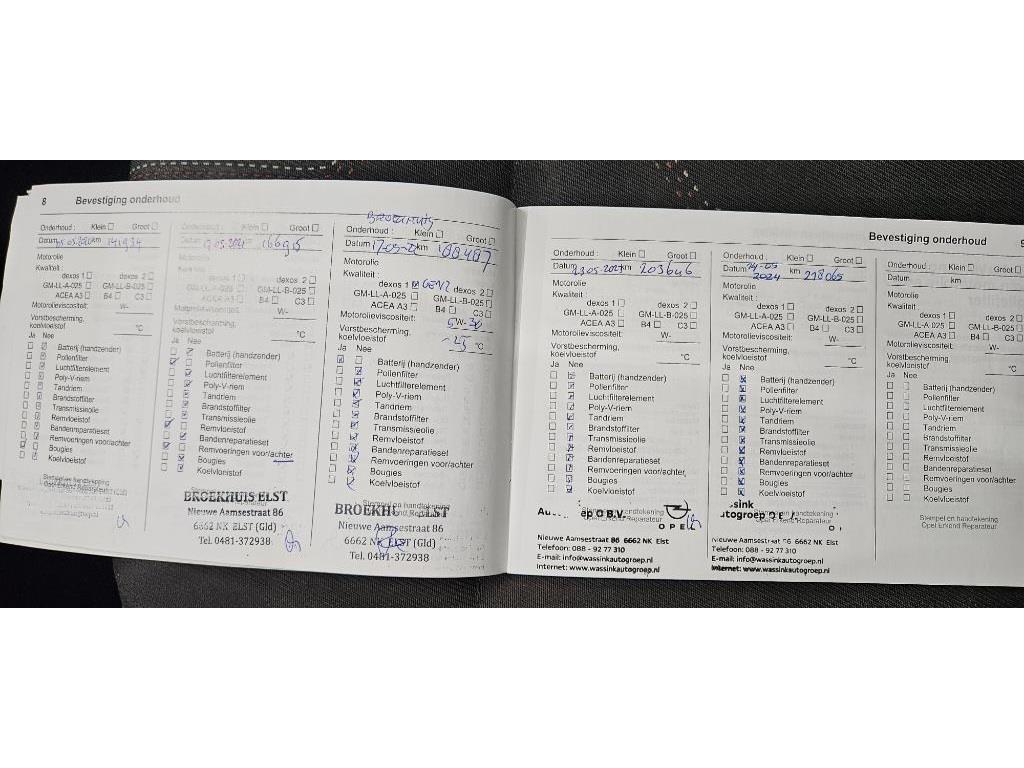 8 Bevestiging onderhoud
Onderhoud : Klein Groot
Datum 05.2020 km 141934
Motorolie
Kwaliteit :
dexos 1 dexos 2
GM-LL-A-025 GM-LL-B-025
ACEA A3 B4 C3
Motorolieviscositeit: W-
Vorstbescherming,
koelvloeistof °C
Ja Nee
Batterij (handzender)
Pollenfilter
Luchtfilterelement
Poly-V-riem
Tandriem
Brandstoffilter
Transmissieolie
Remvloeistof
Bandenreparatieset
Remvoeringen voor/achter
Bougies
Koelvloeistof
Stempel en handtekening
Opel Erkend Reparateur
Onderhoud : Klein Groot
Datum .05.2021 km 166915
Motorolie
Kwaliteit :
dexos 1 dexos 2
GM-LL-A-025 GM-LL-B-025
ACEA A3 B4 C3
Motorolieviscositeit: W-
Vorstbescherming,
koelvloeistof °C
Ja Nee
Batterij (handzender)
Pollenfilter
Luchtfilterelement
Poly-V-riem
Tandriem
Brandstoffilter
Transmissieolie
Remvloeistof
Bandenreparatieset
Remvoeringen voor/achter
Bougies
Koelvloeistof
BROEKHUIS ELST
Nieuwe Aamsestraat 86
6662 NK ELST (Gld)
Tel. 0481-372938
BROEKHUIS
Onderhoud : Klein Groot
Datum 17-05-22 km 188487
Motorolie
Kwaliteit : GEN2
dexos 1 dexos 2
GM-LL-A-025 GM-LL-B-025
ACEA A3 B4 C3
Motorolieviscositeit: 5W-30
Vorstbescherming,
koelvloeistof -25 °C
Ja Nee
Batterij (handzender)
Pollenfilter
Luchtfilterelement
Poly-V-riem
Tandriem
Brandstoffilter
Transmissieolie
Remvloeistof
Bandenreparatieset
Remvoeringen voor/achter
Bougies
Koelvloeistof
Stempel en handtekening
BROEKHUIS ELST
Opel Erkend Reparateur
Nieuwe Aamsestraat 86
6662 NK ELST (Gld)
Tel. 0481-372938
Bevestiging onderhoud 9
Onderhoud : Klein Groot
Datum 23.05.2023 km 203646
Motorolie
Kwaliteit :
dexos 1 dexos 2
GM-LL-A-025 GM-LL-B-025
ACEA A3 B4 C3
Motorolieviscositeit: W-
Vorstbescherming,
koelvloeistof °C
Ja Nee
Batterij (handzender)
Pollenfilter
Luchtfilterelement
Poly-V-riem
Tandriem
Brandstoffilter
Transmissieolie
Remvloeistof
Bandenreparatieset
Remvoeringen voor/achter
Bougies
Koelvloeistof
Stempel en handtekening
Opel Erkend Reparateur
B.V. OPEL
Nieuwe Aamsestraat 86 6662 NK Elst
Telefoon: 088 - 92 77 310
E-mail: info@wassinkautogroep.nl
Internet: www.wassinkautogroep.nl
Onderhoud : Klein Groot
Datum 24-05 2024 km 218065
Motorolie
Kwaliteit :
dexos 1 dexos 2
GM-LL-A-025 GM-LL-B-025
ACEA A3 B4 C3
Motorolieviscositeit: W-
Vorstbescherming,
koelvloeistof °C
Ja Nee
Batterij (handzender)
Pollenfilter
Luchtfilterelement
Poly-V-riem
Tandriem
Brandstoffilter
Transmissieolie
Remvloeistof
Bandenreparatieset
Remvoeringen voor/achter
Bougies
Koelvloeistof
ssink
Stempel en handtekening
utogroep OPE
Opel Erkend Reparateur
Nieuwe Aamsestraat 86 6662 NK Elst
Telefoon: 088 - 92 77 310
E-mail: info@wassinkautogroep.nl
Internet: www.wassinkautogroep.nl
Onderhoud : Klein Groot
Datum km
Motorolie
Kwaliteit :
dexos 1 dexos 2
GM-LL-A-025 GM-LL-B-025
ACEA A3 B4 C3
Motorolieviscositeit: W-
Vorstbescherming,
koelvloeistof °C
Ja Nee
Batterij (handzender)
Pollenfilter
Luchtfilterelement
Poly-V-riem
Tandriem
Brandstoffilter
Transmissieolie
Remvloeistof
Bandenreparatieset
Remvoeringen voor/achter
Bougies
Koelvloeistof
Stempel en handtekening
Opel Erkend Reparateur